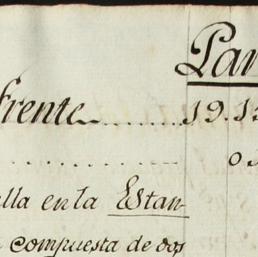 Par
frente......... 19.15
........................ 03
lla en la Estan-
compuesta de dos